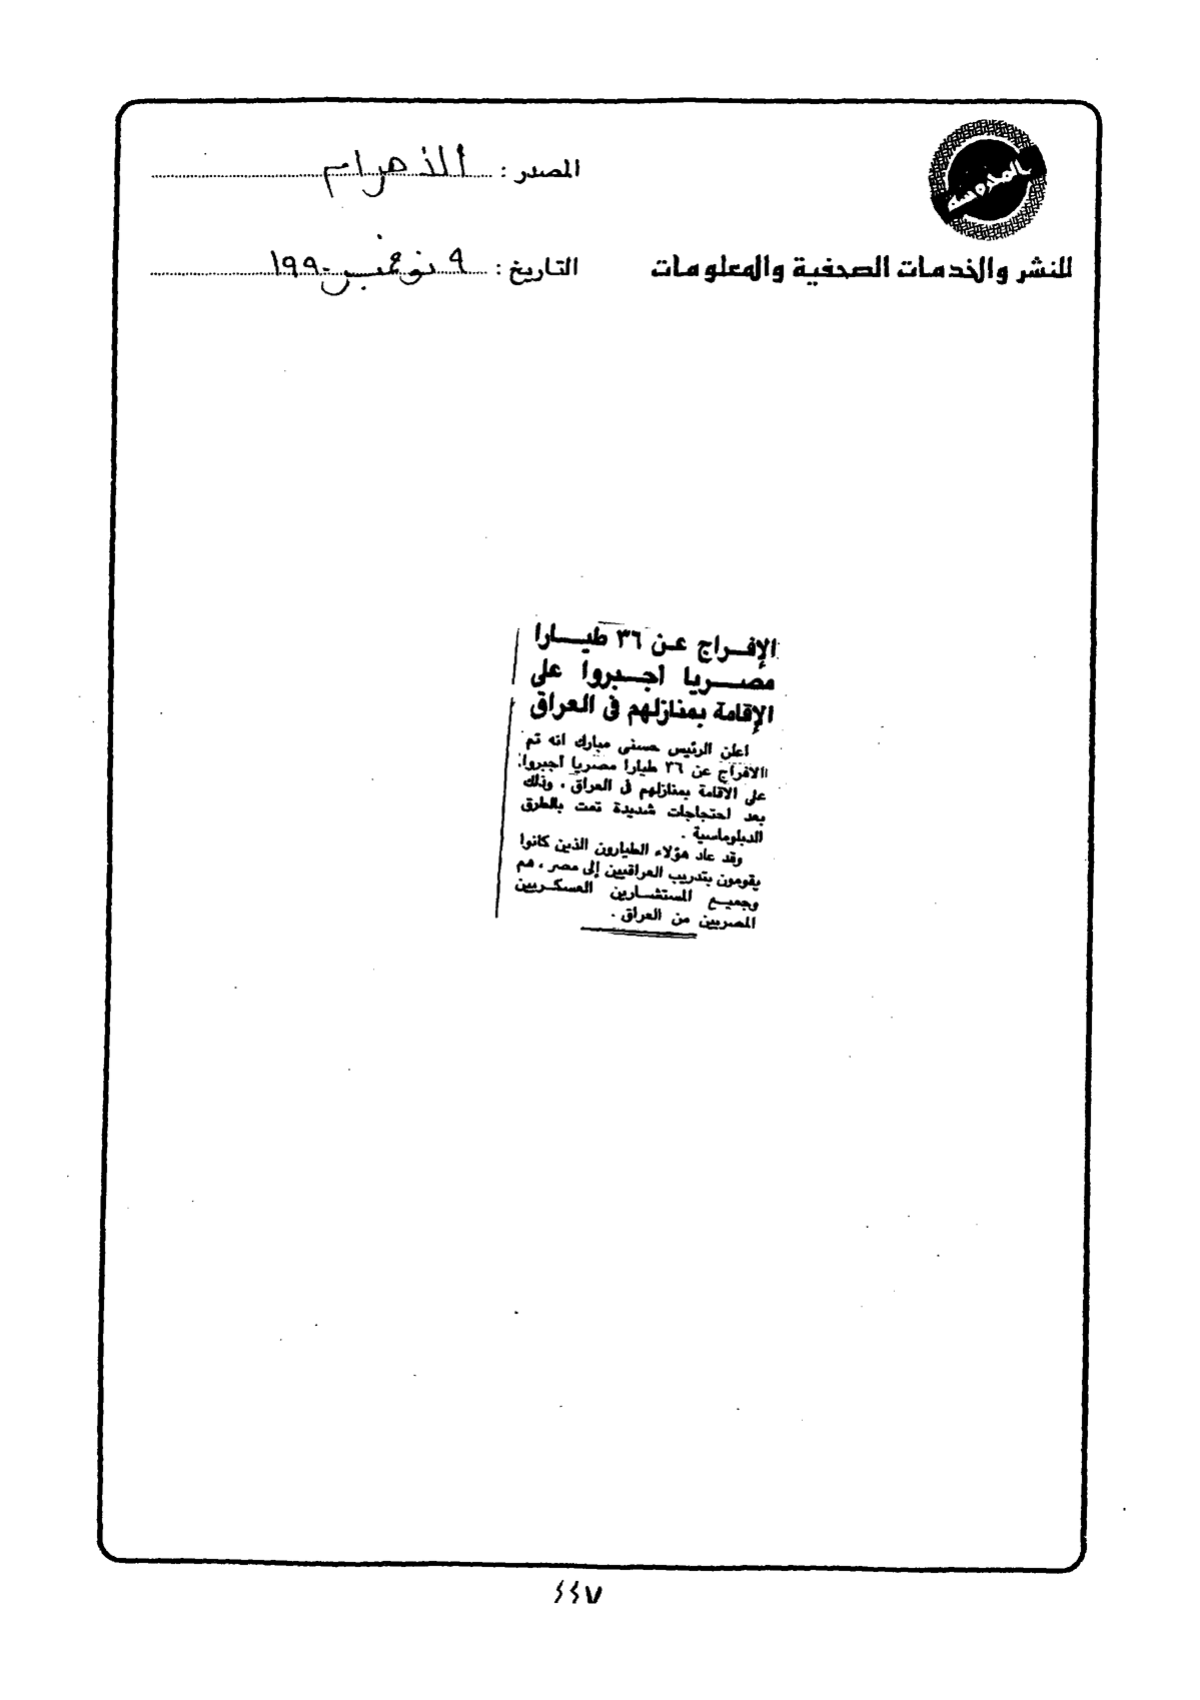 المدروسة
للنشر والخدمات الصحفية والمعلومات
المصدر : الأهرام
التاريخ : ٩ نوفمبر ١٩٩٠
الإفراج عن ٣٦ طيارا
مصريا اجبروا على
الإقامة بمنازلهم فى العراق
اعلن الرئيس حسنى مبارك انه تم
الافراج عن ٣٦ طيارا مصريا اجبروا
على الاقامة بمنازلهم فى العراق ، وذلك
بعد احتجاجات شديدة تمت بالطرق
الدبلوماسية .
وقد عاد هؤلاء الطيارون الذين كانوا
يقومون بتدريب العراقيين إلى مصر ، هم
وجميع المستشارين العسكريين
المصريين من العراق .
٤٤٧